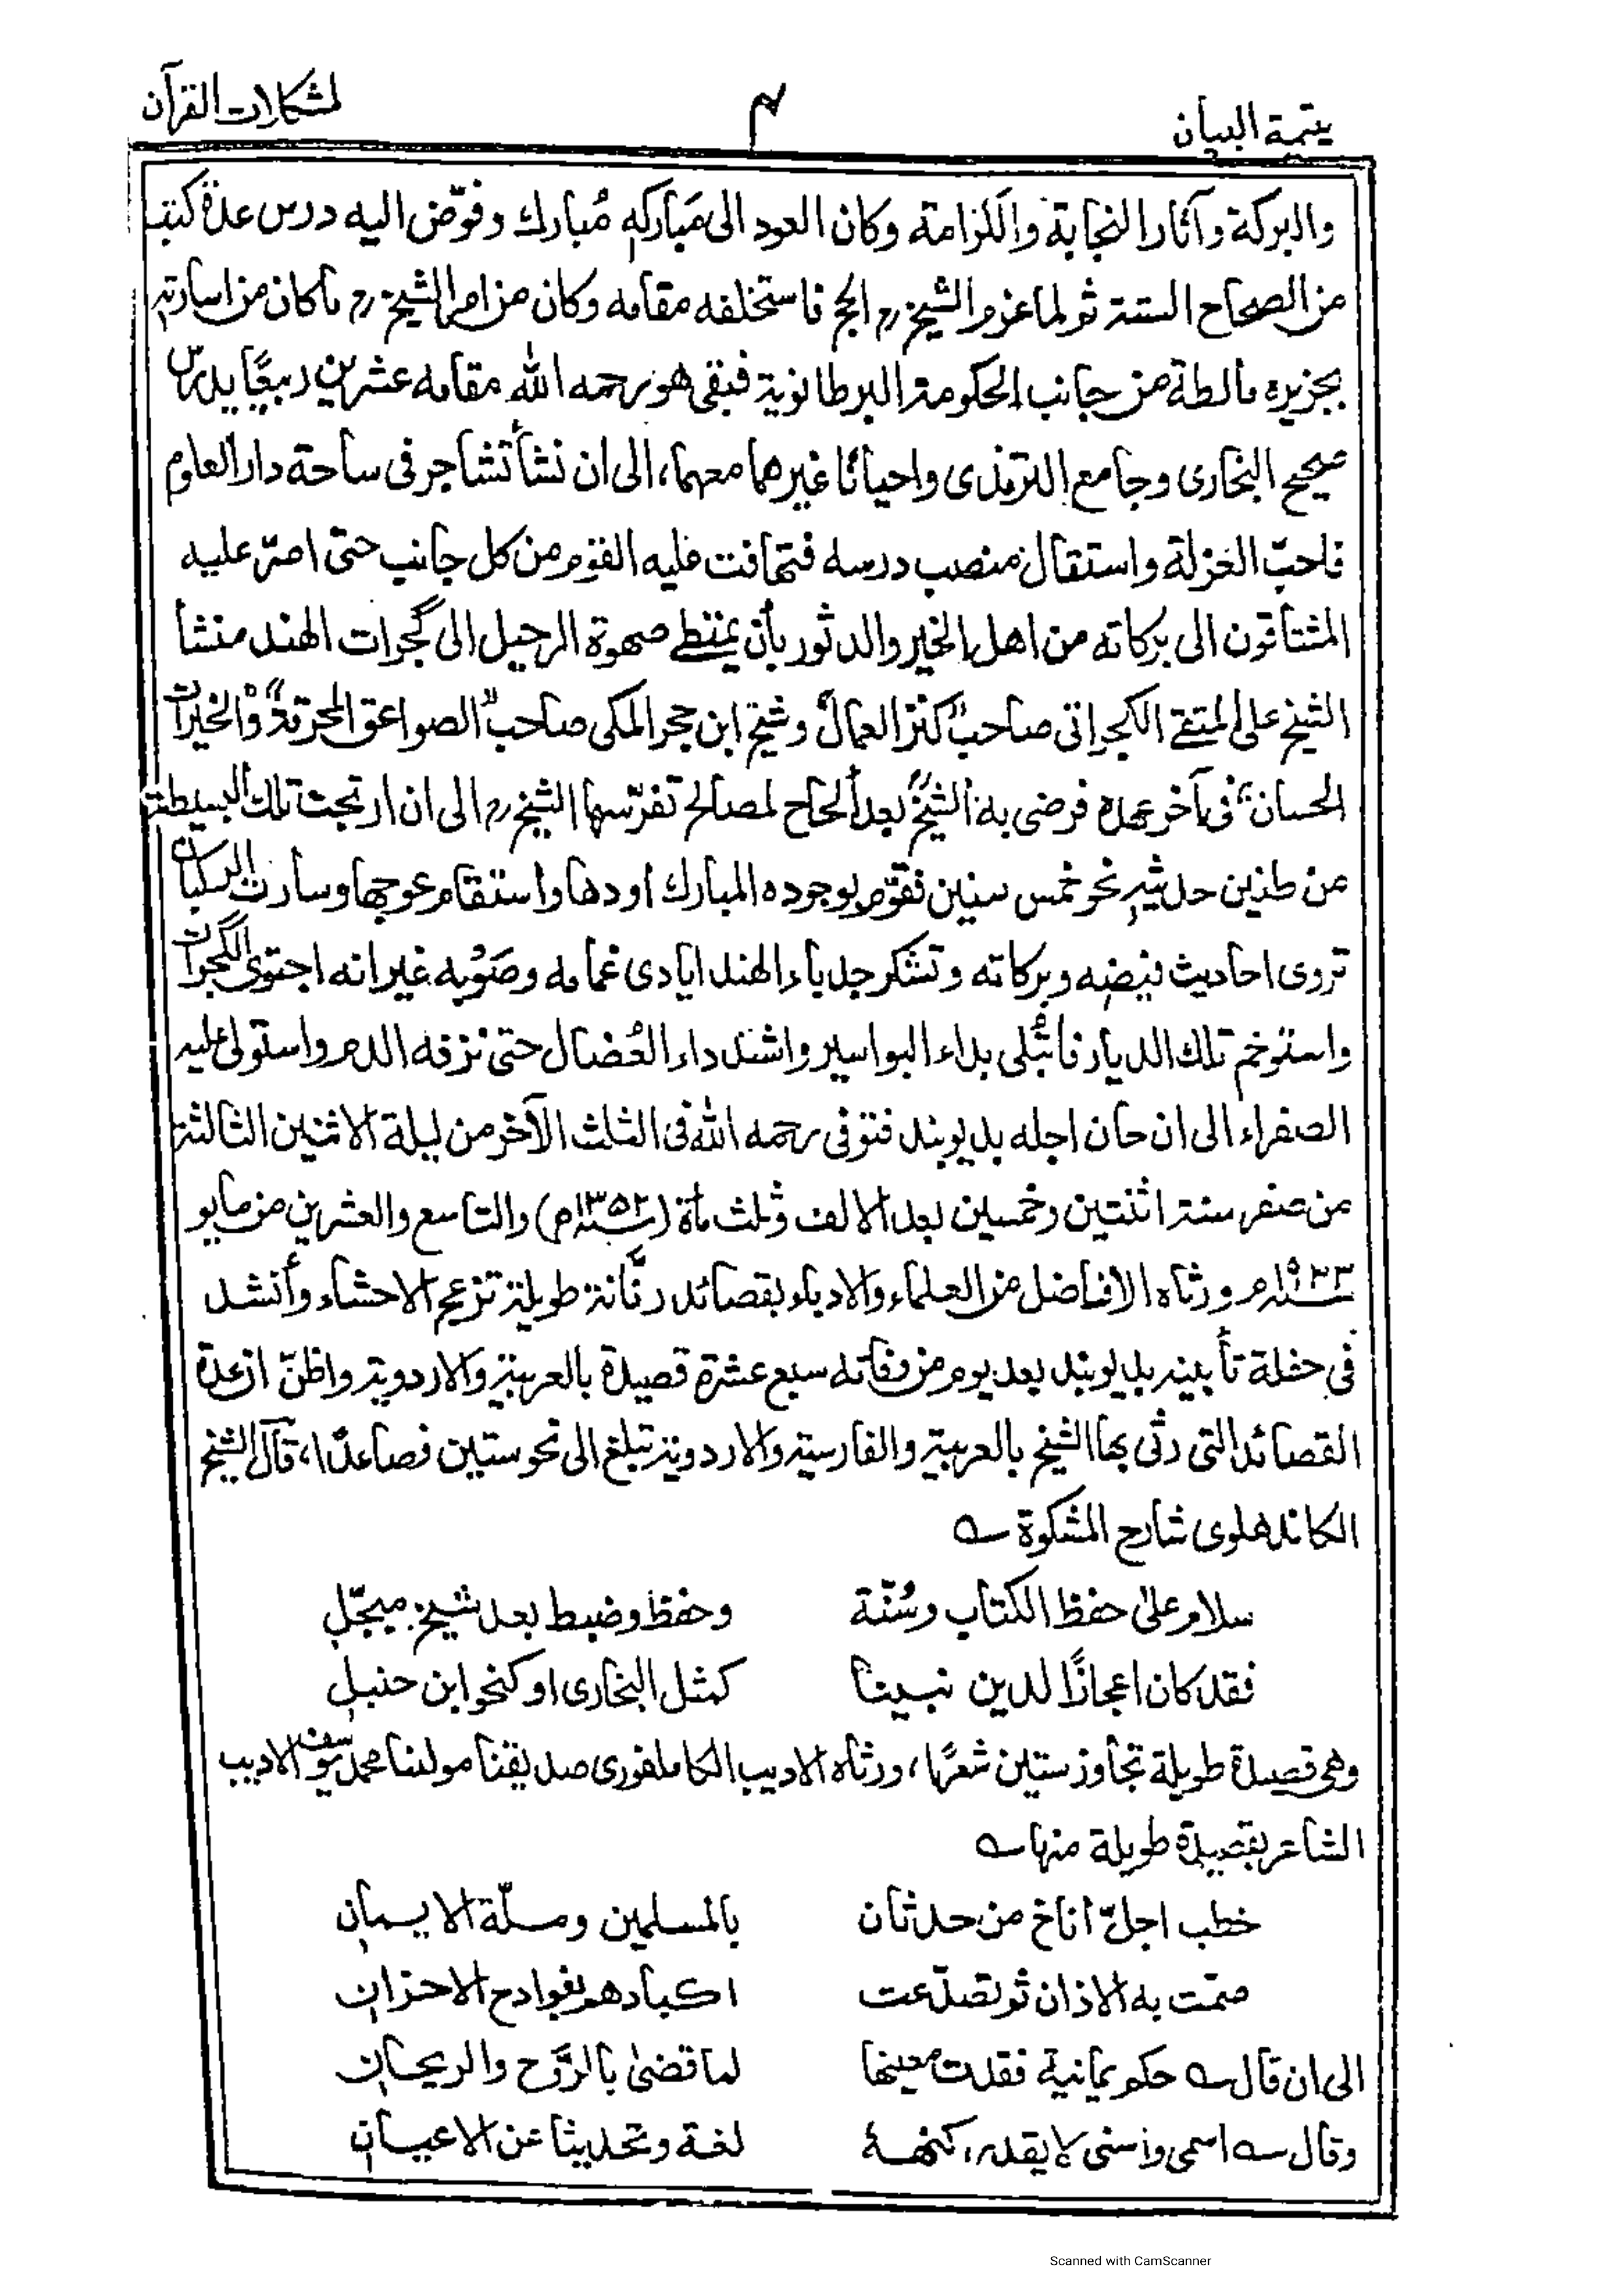 يتيمة البيان
٤
لمشكلات القرآن
والبركة وآثار النجابة والكرامة وكان العود الى مَباركهٖ مُبارك وفوّض اليه درس عدة كتب
من الصحاح الستة ثم لما عزم الشيخ رح الحج فاستخلفه مقامه وكان من امر الشيخ رح ما كان من اسارته
بجزيره مالطة من جانب الحكومة البرطانوية فبقى هو رحمه الله مقامه عشرين ربيعًا يدرس
صحيح البخارى وجامع الترمذى واحيانًا غيرهما معهما، الى ان نشأ تشاجر فى ساحة دار العلوم
فاحبّ العزلة واستقال منصب درسه فتهافت عليه القوم من كل جانب حتى اصرّ عليه
المشتاقون الى بركاته من اهل الخير والدثور بأن يمتطى صهوة الرحيل الى گجرات الهند منشأ
الشيخ على المتقى الكجراتى صاحب "كنز العمال" وشيخ ابن حجر المكى صاحب "الصواعق المحرقة" و"الخيرات
الحسان" فى آخر عهده فرضى به الشيخ بعد الحاح لمصالح تفرّسها الشيخ رح الى ان ارتجت تلك البسيطة
من طنين حديثهٖ نحو خمس سنين فقوّم بوجوده المبارك اودها واستقام عوجها وسارت الركبان
تروى احاديث فيضه وبركاته وتشكر جدباء الهند ايادى غمامه وصَوْبه غير انه اجتوى الگجرات
واستوخم تلك الديار فابتُلى بداء البواسير واشتد داء العُضال حتى نزفه الدم واستولى عليه
الصفراء الى ان حان اجله بديوبند فتوفى رحمه الله فى الثلث الآخر من ليلة الاثنين الثالثة
من صفر سنة اثنتين وخمسين بعد الالف وثلث مأة (سنه ١٣٥٢م) والتاسع والعشرين من مايو
سنه ١٩٣٣م ورثاه الافاضل من العلماء والادباء بقصائد رنّانة طويلة تزعج الاحشاء وأنشد
فى حفلة تأبينه بديوبند بعد يوم من وفاته سبع عشرة قصيدة بالعربية والاردوية واظنّ ان عدة
القصائد التى رثى بها الشيخ بالعربية والفارسية والاردوية تبلغ الى نحو ستين فصاعدًا، قال الشيخ
الكاندهلوى شارح المشكوة ؎
سلام على حفظ الكتاب وسُنّة وحفظ وضبط بعد شيخ مبجّل
فقد كان اعجازًا لدين نبينا كمثل البخارى او كنحو ابن حنبل
وهى قصيدة طويلة تجاوز ستين شعرًا، ورثاه الاديب الكاملفورى صديقنا مولنا محمد يوسف الاديب
الشاعر بقصيدة طويلة منها ؎
خطب اجلّ اناخ من حدثان بالمسلمين وملّة الايمان
صمّت به الاذان ثم تصدّعت اكبادهم بفوادح الاحزان
الى ان قال ؎ حكم يمانية فقدت معينها لما قضىٰ بالرَّوح والريحان
وقال ؎ اسمى واسنى لا يقدر، كنهه لغة وتحديثا عن الاعيان
Scanned with CamScanner